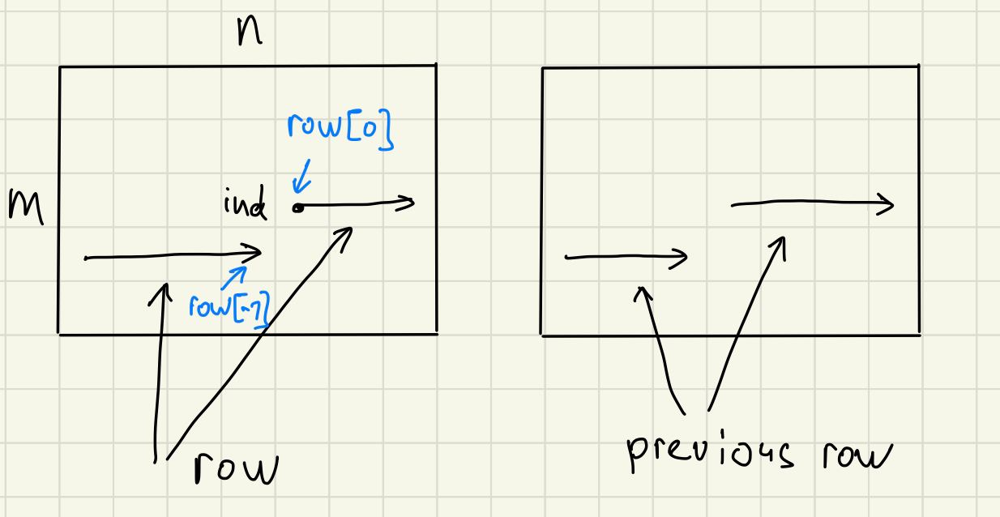 n
row[0]
m
ind
row[-1]
row
previous row